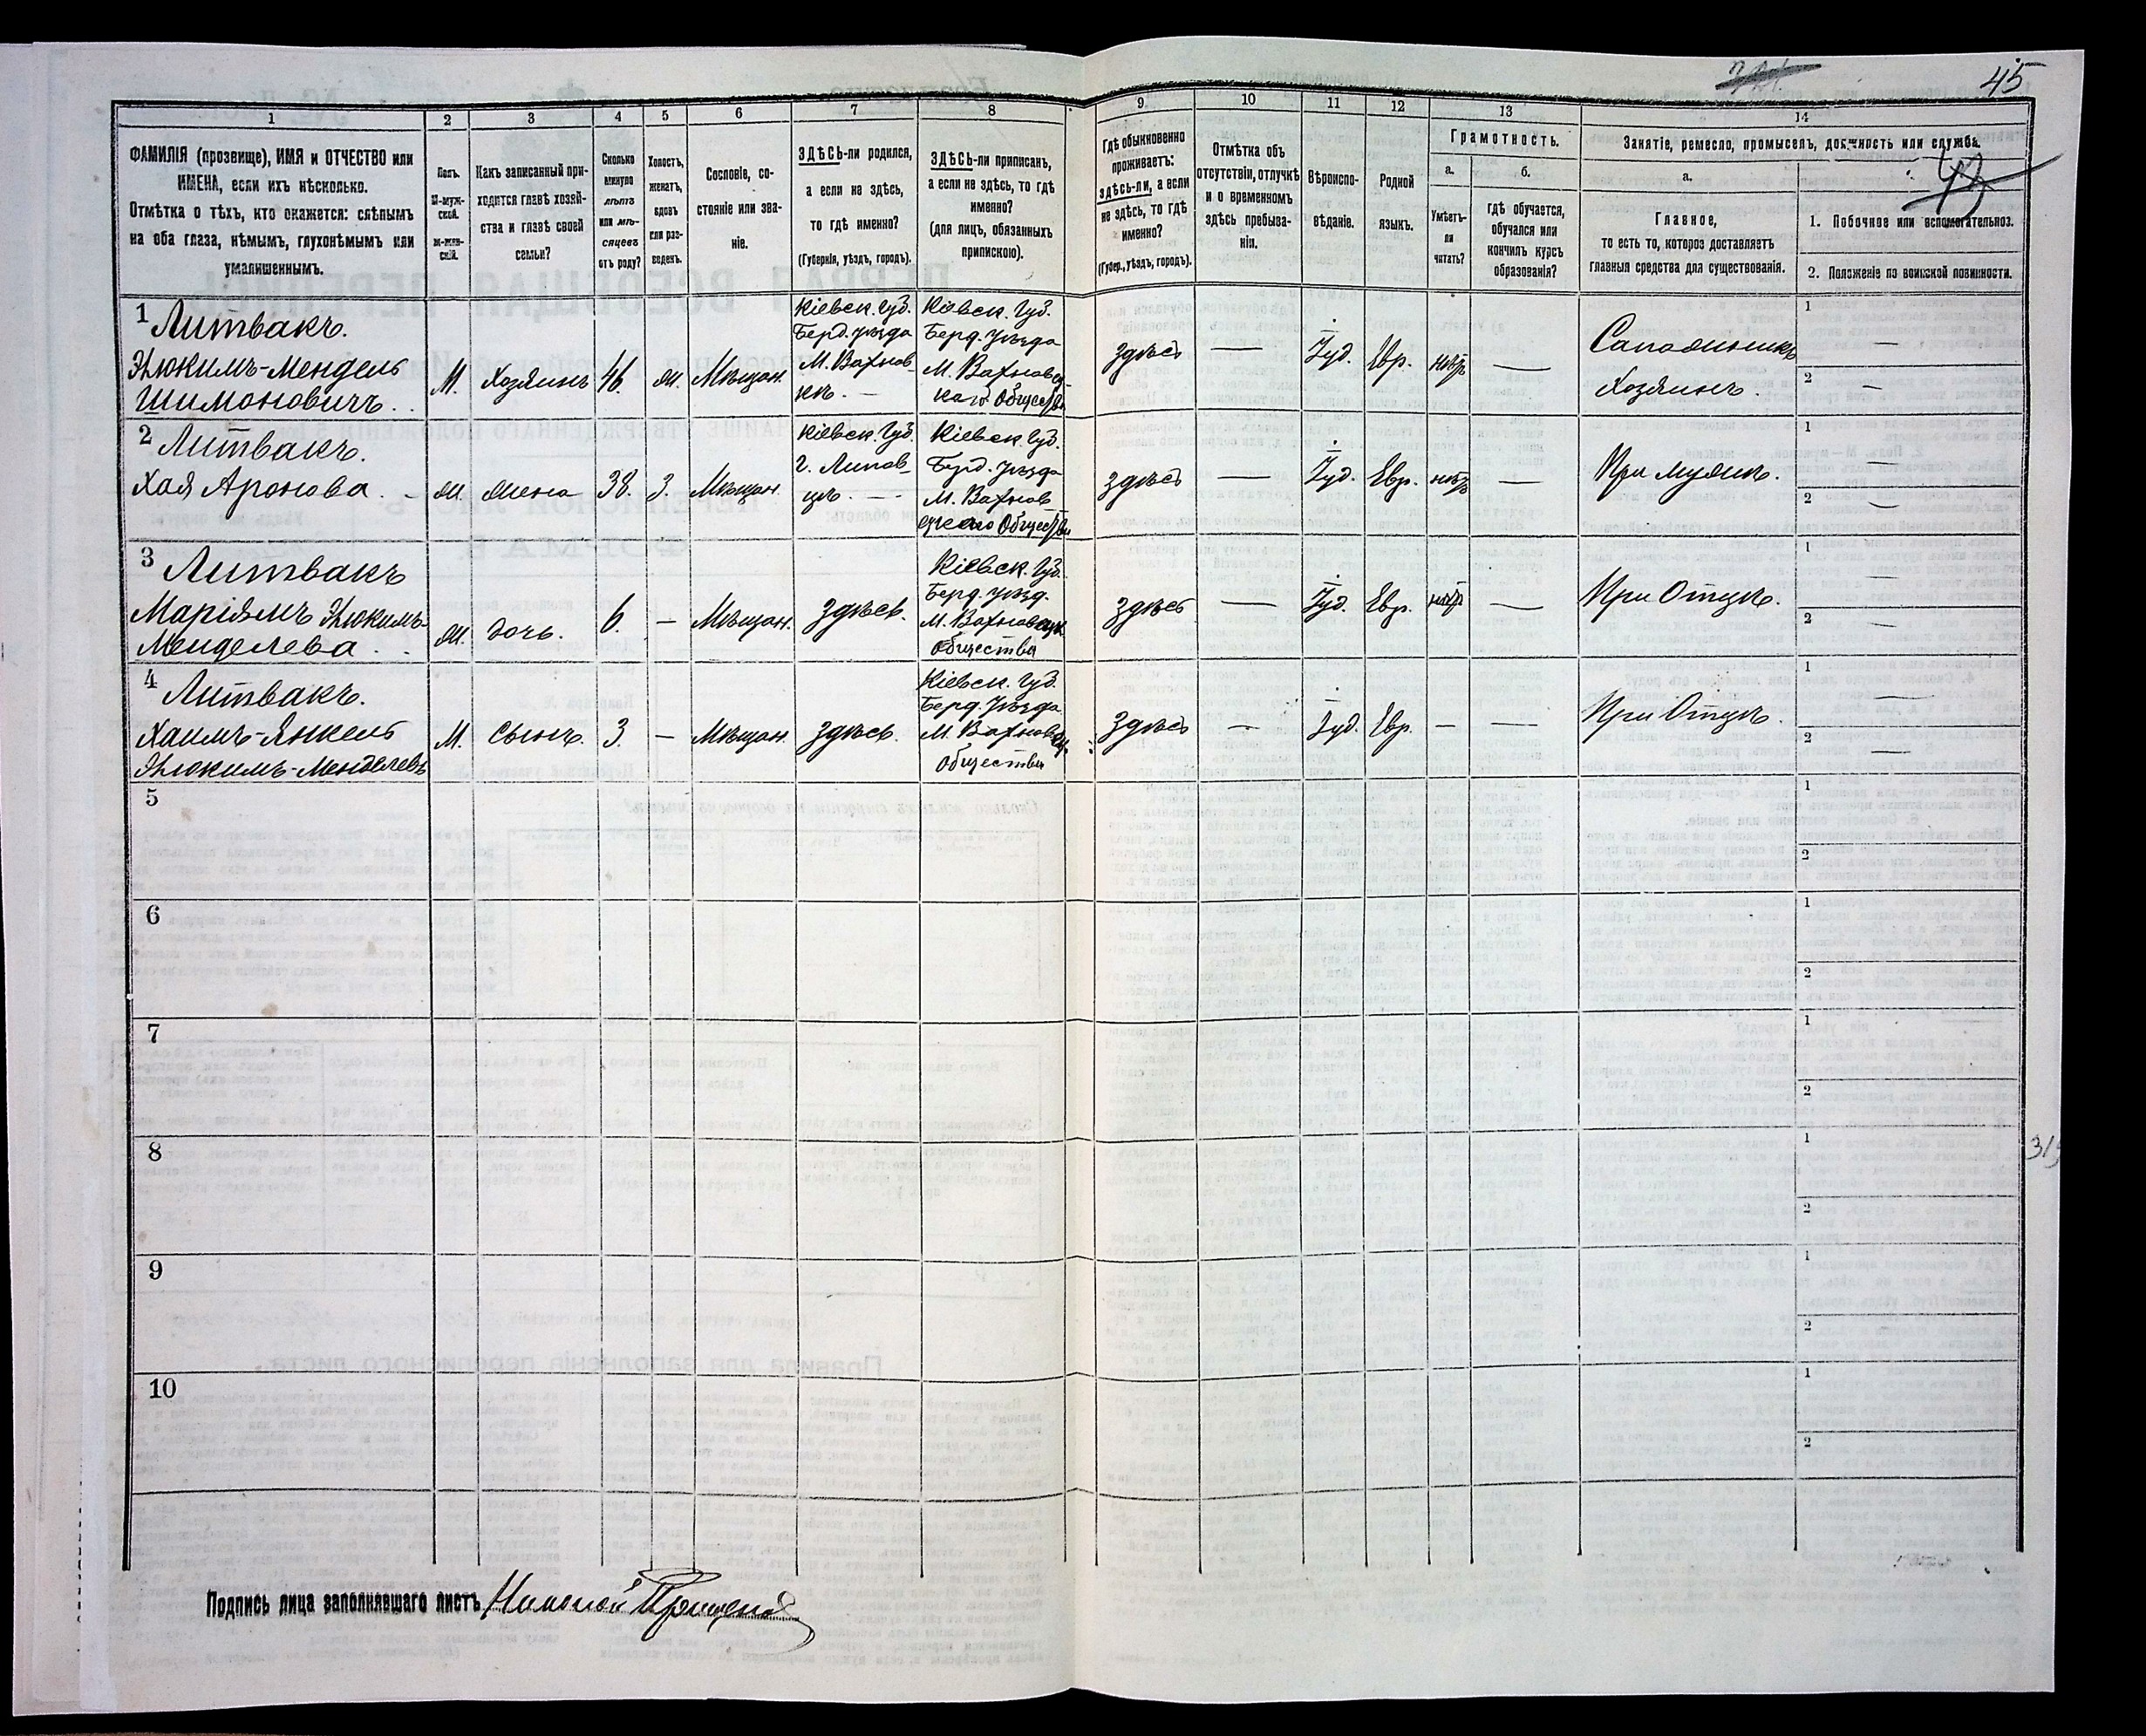 45
1
2
3
4
5
6
7
8
9
10
11
12
13
14
ФАМИЛІЯ (прозвище), ИМЯ и ОТЧЕСТВО или
ИМЕНА, если ихъ нѣсколько.
Отмѣтка о тѣхъ, кто окажется: слѣпымъ
на оба глаза, нѣмымъ, глухонѣмымъ или
умалишеннымъ.
Полъ.
М-муж-
ской.
ж-жен-
скій.
Какъ записанный при-
ходится главѣ хозяй-
ства и главѣ своей
семьи?
Сколько
минуло
лѣтъ
или мѣ-
сяцевъ
отъ роду?
Холостъ,
женатъ,
вдовъ
или раз-
веденъ.
Сословіе, со-
стояніе или зва-
ніе.
ЗДѢСЬ-ли родился,
а если не здѣсь,
то гдѣ именно?
(Губернія, уѣздъ, городъ).
ЗДѢСЬ-ли приписанъ,
а если не здѣсь, то гдѣ
именно?
(для лицъ, обязанныхъ
припискою).
Гдѣ обыкновенно
проживаетъ:
здѣсь-ли, а если
не здѣсь, то гдѣ
именно?
(Губер., уѣздъ, городъ).
Отмѣтка объ
отсутствіи, отлучкѣ
и о временномъ
здѣсь пребыва-
ніи.
Вѣроиспо-
вѣданіе.
Родной
языкъ.
Грамотность.
а.
Умѣетъ-
ли
читать?
б.
гдѣ обучается,
обучался или
кончилъ курсъ
образованія?
Занятіе, ремесло, промыселъ, должность или служба.
а.
Главное,
то есть то, которое доставляетъ
главныя средства для существованія.
1. Побочное или вспомогательное.
2. Положеніе по воинской повинности.
1 Литвакъ.
Элюкимъ-Мендель
Шимоновичъ.
М.
Хозяинъ
46.
ж.
Мѣщан.
Кіевск. Губ.
Берд. уѣзда
М. Вахнов-
кѣ. —
Кіевск. Губ.
Берд. уѣзда
М. Вахновец-
каго Общества
здѣсь
—
Іуд.
Евр.
нѣтъ
—
Сапожникъ
Хозяинъ.
1 —
2 —
2 Литвакъ.
Хая Аронова.
ж.
жена
38.
З.
Мѣщан.
Кіевск. Губ.
г. Липов-
цѣ. —
Кіевск. Губ.
Берд. уѣзда
М. Вахнов-
ецкаго Общества
здѣсь
—
Іуд.
Евр.
нѣтъ
—
При мужѣ.
1 —
2 —
3 Литвакъ
Маріямъ Элюкимъ-
Менделева.
ж.
дочь.
6.
—
Мѣщан.
Здѣсь.
Кіевск. Губ.
Берд. уѣзд.
М. Вахновецк.
Общества
здѣсь
—
Іуд.
Евр.
нѣтъ
—
При Отцѣ.
1 —
2 —
4 Литвакъ.
Хаимъ-Янкель
Элюкимъ-Менделевъ
М.
Сынъ.
3.
—
Мѣщан.
Здѣсь.
Кіевск. Губ.
Берд. Уѣзда
М. Вахновец.
Общества
здѣсь
—
Іуд.
Евр.
—
—
При Отцѣ.
1 —
2 —
5
1
2
6
1
2
7
1
2
8
1
2
9
1
2
10
1
2
Подпись лица заполнявшаго листъ